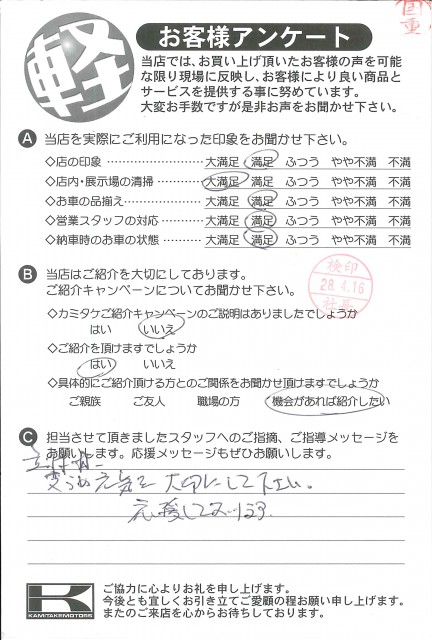 国重
軽
お客様アンケート
当店では、お買い上げ頂いたお客様の声を可能
な限り現場に反映し、お客様により良い商品と
サービスを提供する事に努めています。
大変お手数ですが是非お声をお聞かせ下さい。
A 当店を実際にご利用になった印象をお聞かせ下さい。
◇店の印象 ………………… 大満足 満足 ふつう やや不満 不満
◇店内・展示場の清掃 ………… 大満足 満足 ふつう やや不満 不満
◇お車の品揃え ……………… 大満足 満足 ふつう やや不満 不満
◇営業スタッフの対応 ………… 大満足 満足 ふつう やや不満 不満
◇納車時のお車の状態 ………… 大満足 満足 ふつう やや不満 不満
B 当店はご紹介を大切にしております。
ご紹介キャンペーンについてお聞かせ下さい。
検印
28.4.16
社長
◇カミタケご紹介キャンペーンのご説明はありましたでしょうか
はい いいえ
◇ご紹介を頂けますでしょうか
はい いいえ
◇具体的にご紹介頂ける方とのご関係をお聞かせ頂けますでしょうか
ご親族 ご友人 職場の方 機会があれば紹介したい
C 担当させて頂きましたスタッフへのご指摘、ご指導メッセージを
お願いします。応援メッセージもぜひお願いします。
元気を大切にして下さい。
応援しております。
K
KAMITAKEMOTORS
ご協力に心よりお礼を申し上げます。
今後とも宜しくお引き立てご愛顧の程お願い申し上げます。
またのご来店を心からお待ちしております。